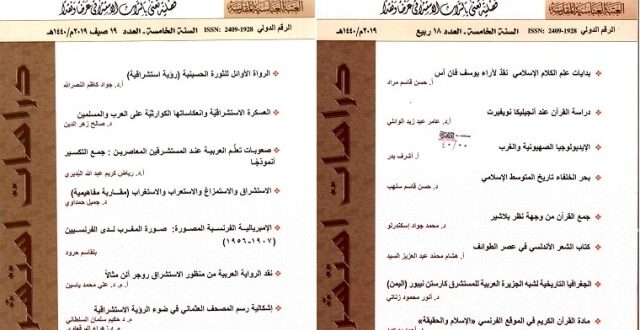 العتبة العباسية المقدسة
فصلية تعنى بالتراث الاستشراقي عرضا ونقدا
الرقم الدولي ISSN: 2409-1928 السنة الخامسة ـ العدد ١٨ ربيع ٢٠١٩م/١٤٤٠هـ
بدايات علم الكلام الإسلامي نقدٌ لآراء يوسف فان أس
أ. حسن قاسم مراد
دراسة القرآن عند أنجيليكا نويفيرت
أ.د. عامر عبد زيد الوائلي
الإيديولوجيا الصهيونية والغرب
أ. أشرف بدر
بحر الخلفاء تاريخ المتوسط الإسلامي
د. حسن قاسم سلهب
جمع القرآن من وجهة نظر بلاشير
د. محمد جواد إسكندرلو
كتاب الشعر الأندلسي في عصر الطوائف
أ. هشام محمّد عبد العزيز السيد
الجغرافيا التاريخية لشبه الجزيرة العربية للمستشرق كارستن نيبور (اليمن)
د. أنور محمود زناتي
مادة القرآن الكريم في الموقع الفرنسي «الإسلام والحقيقة»
دراسات استشر
فصلية تعنى بالتراث الاستشراقي عرضا ونقدا
الرقم الدولي ISSN: 2409-1928 السنة الخامسة ـ العدد ١٩ صيف ٢٠١٩م/١٤٤٠هـ
الرواة الأوائل للثورة الحسينية (رؤية استشراقية)
أ.د. جواد كاظم النصرالله
العسكرة الاستشراقية وانعكاساتها الكوارثية على العرب والمسلمين
د. صالح زهر الدين
صعوبات تعلّم العربية عند المستشرقين المعاصرين : جمع التكسير
أنموذجًا
أ.د. رياض كريم عبد الله البديري
الاستشراق والاستمزاغ والاستعراب والاستغراب (مقاربة مفاهيمية)
د. جميل حمداوي
الإمبريالية الفرنسية المصورة: صورة المغرب لدى الفرنسيين
(١٩٠٧-١٩٥٦)
بلقاسم حرود
نقد الرواية العربية من منظور الاستشراق روجر ألن مثالاً
أ.م.د. علي محمد ياسين
إشكالية رسم المصحف العثماني في ضوء الرؤية الاستشراقية
د. حكيم سلمان السلطاني
دراسات استشر